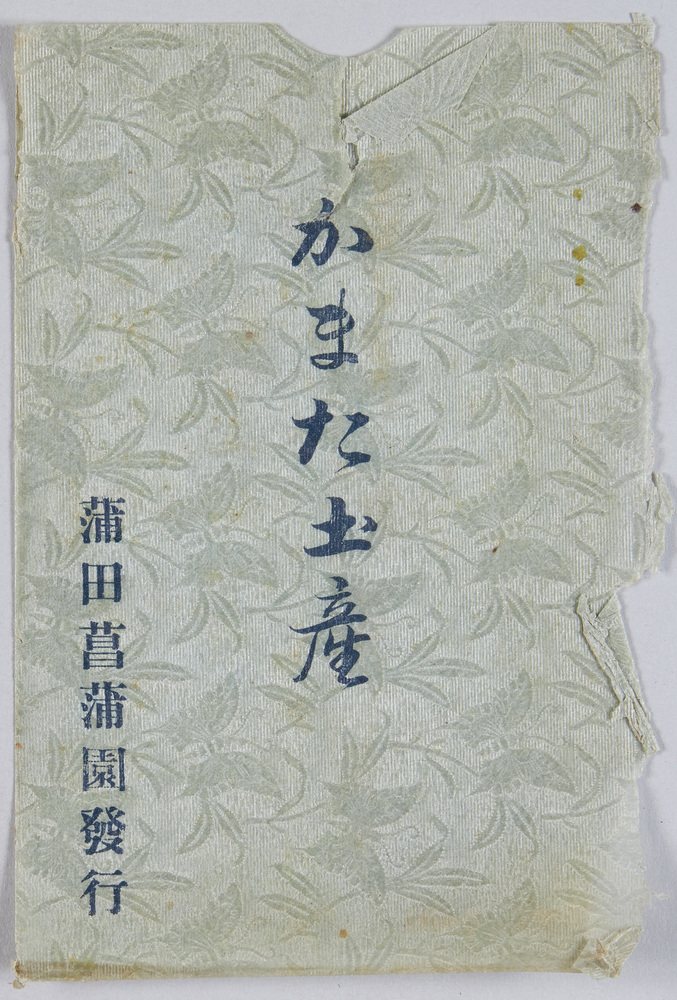 かまた土産
蒲田菖蒲園發行